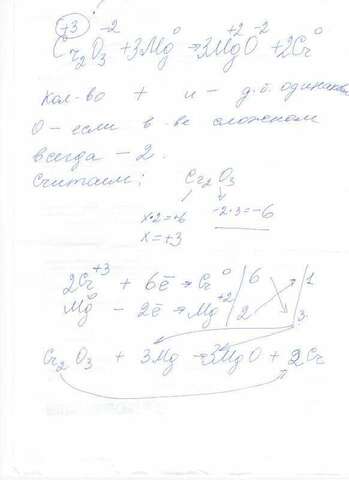 +3 -2 0 +2 -2 0
Cr₂O₃ + 3Mg → 3MgO + 2Cr
Кол-во + и - д.б. одинаков
О - если в в-ве сложном
всегда - 2.
Считаем: Cr₂O₃
x·2=+6 -2·3=-6
x=+3
2Cr⁺³ + 6ē → Cr⁰ | 6 | 1
Mg⁰ - 2ē → Mg⁺² | 2 | 3
Cr₂O₃ + 3Mg → 3MgO + 2Cr